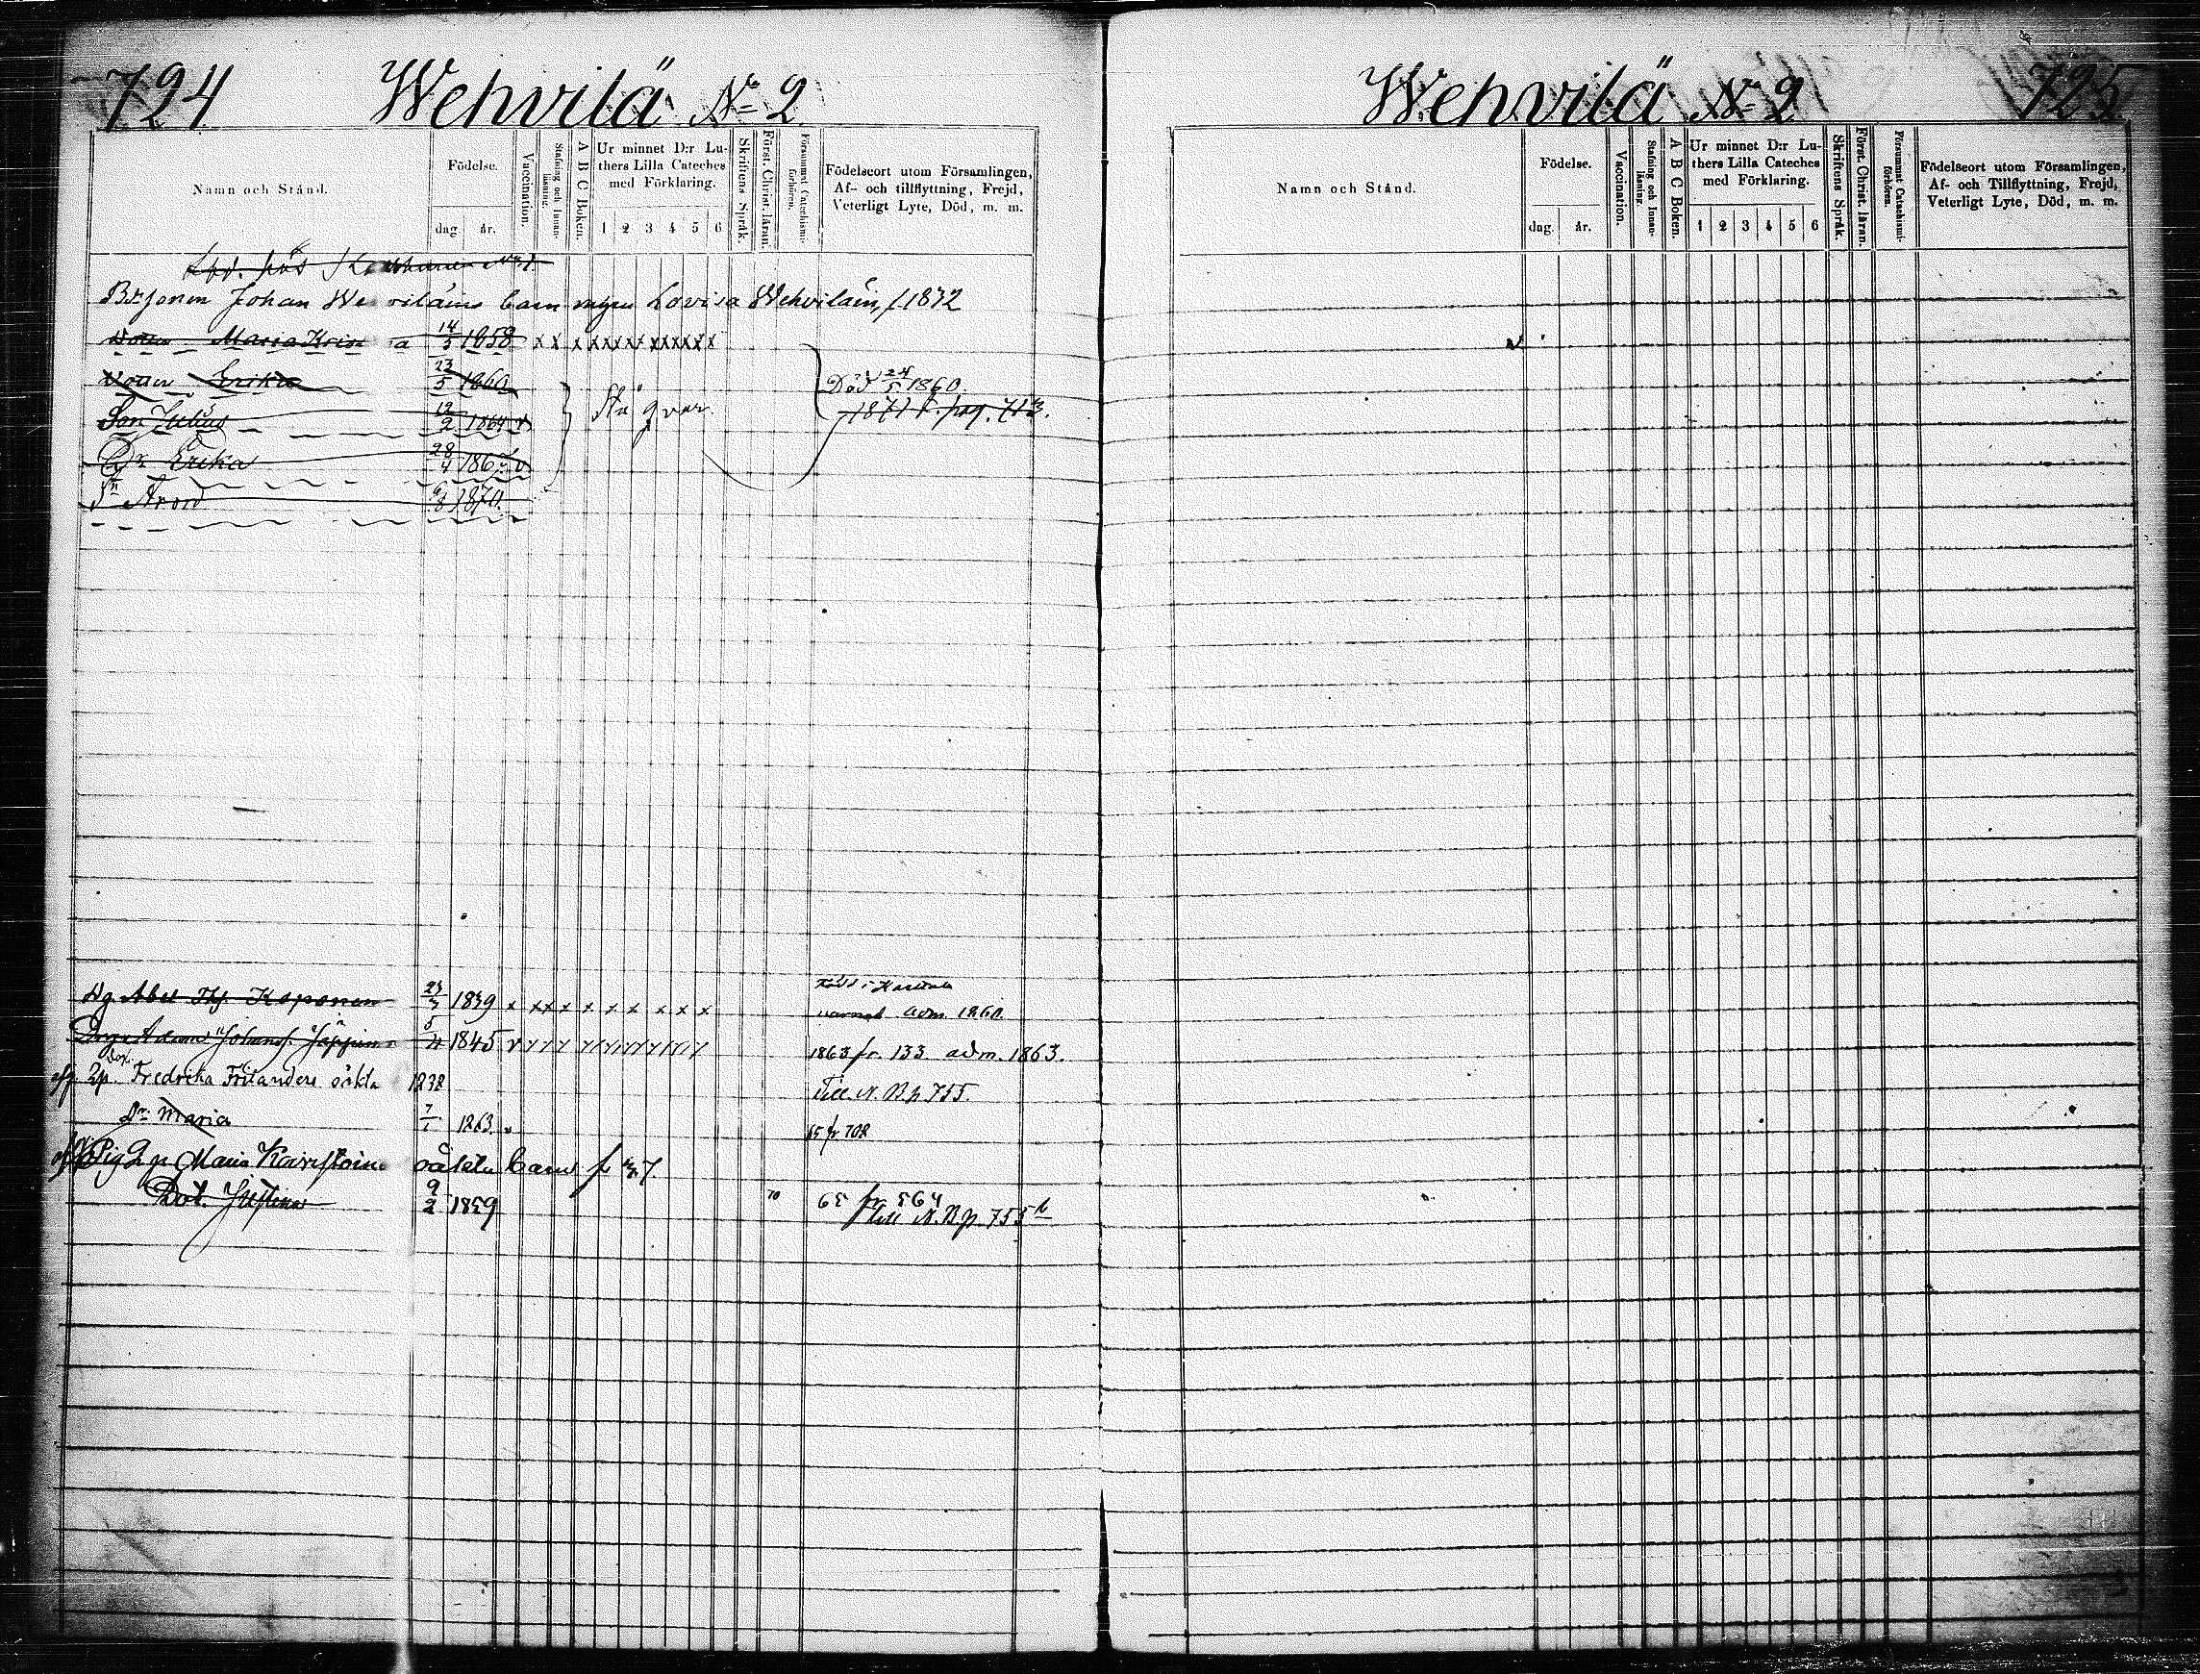 724 Wehvilä No 2
Namn och Stånd. Födelse. dag. år. Vaccination. Stafning och Innanläsning. A B C Boken. Ur minnet D:r Luthers Lilla Cateches med Förklaring. 1 2 3 4 5 6 Skriftens Språk. Först. Christ. läran. Försummat Catechismiförhören. Födelseort utom Församlingen, Af- och tillflyttning, Frejd, Veterligt Lyte, Död, m. m.
Johan barn Lovisa Wehviläin, f. 1832
Maria 14/5 1858 x x x x x x x x x x x x
Erika 23/5 1860 Död 24/5 1860.
Son Julius 19/2 1864 Stå qvar. 1871 f. pag. 713.
Dr Erika 28/4 1867
Sn 1870.
Dg Abel Koponen 23/7 1839 x x x x x x x x x x adm. 1860.
Dräng Adam Johans. 5/4 1845 1863 fr. 133. adm. 1863.
2p. Fredrika oäkta 1838 Till N. B. p 755.
Dr Maria 7/1 1863. 65 fr 702
Pig Maria oäkta barn fr 7.
Dot. Justina 9/2 1859 70 65 fr. 564
till N. B. p. 755
Wehvilä No 2 725.
Namn och Stånd. Födelse. dag. år. Vaccination. Stafning och Innanläsning. A B C Boken. Ur minnet D:r Luthers Lilla Cateches med Förklaring. 1 2 3 4 5 6 Skriftens Språk. Först. Christ. läran. Försummat Catechismiförhören. Födelseort utom Församlingen, Af- och Tillflyttning, Frejd, Veterligt Lyte, Död, m. m.